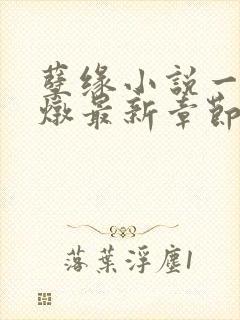 孽缘小說一
燉最新章節
落葉浮塵1